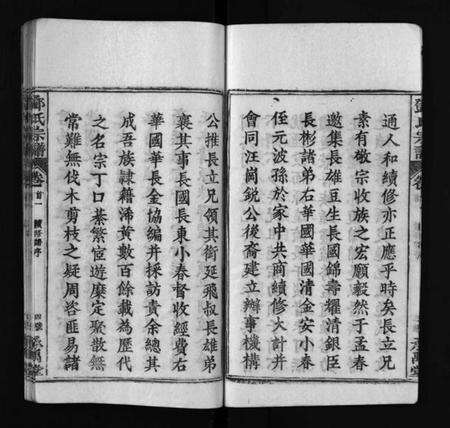 通人和續修亦正應乎時矣長立兄
素有敬宗收族之宏願毅然于孟春
邀集長雄豆生長國錦壽耀清銀臣
長彬諸弟右華國華國清金安小春
侄元波孫於家中共商續修大計并
會同汪崗銳公後裔建立辦事機構
公推長立兄領其銜延飛叔長雄弟
襄其事長國長東小春督收經費右
華國華長金協編并採訪責余總其
成吾族隷籍浠黄數百餘載為歷代
之名宗丁口蕃繁宦遊靡定聚散無
常難無伐木剪枝之疑周咨匪易諸
鄧氏宗譜
卷首一
續修譜序
四號